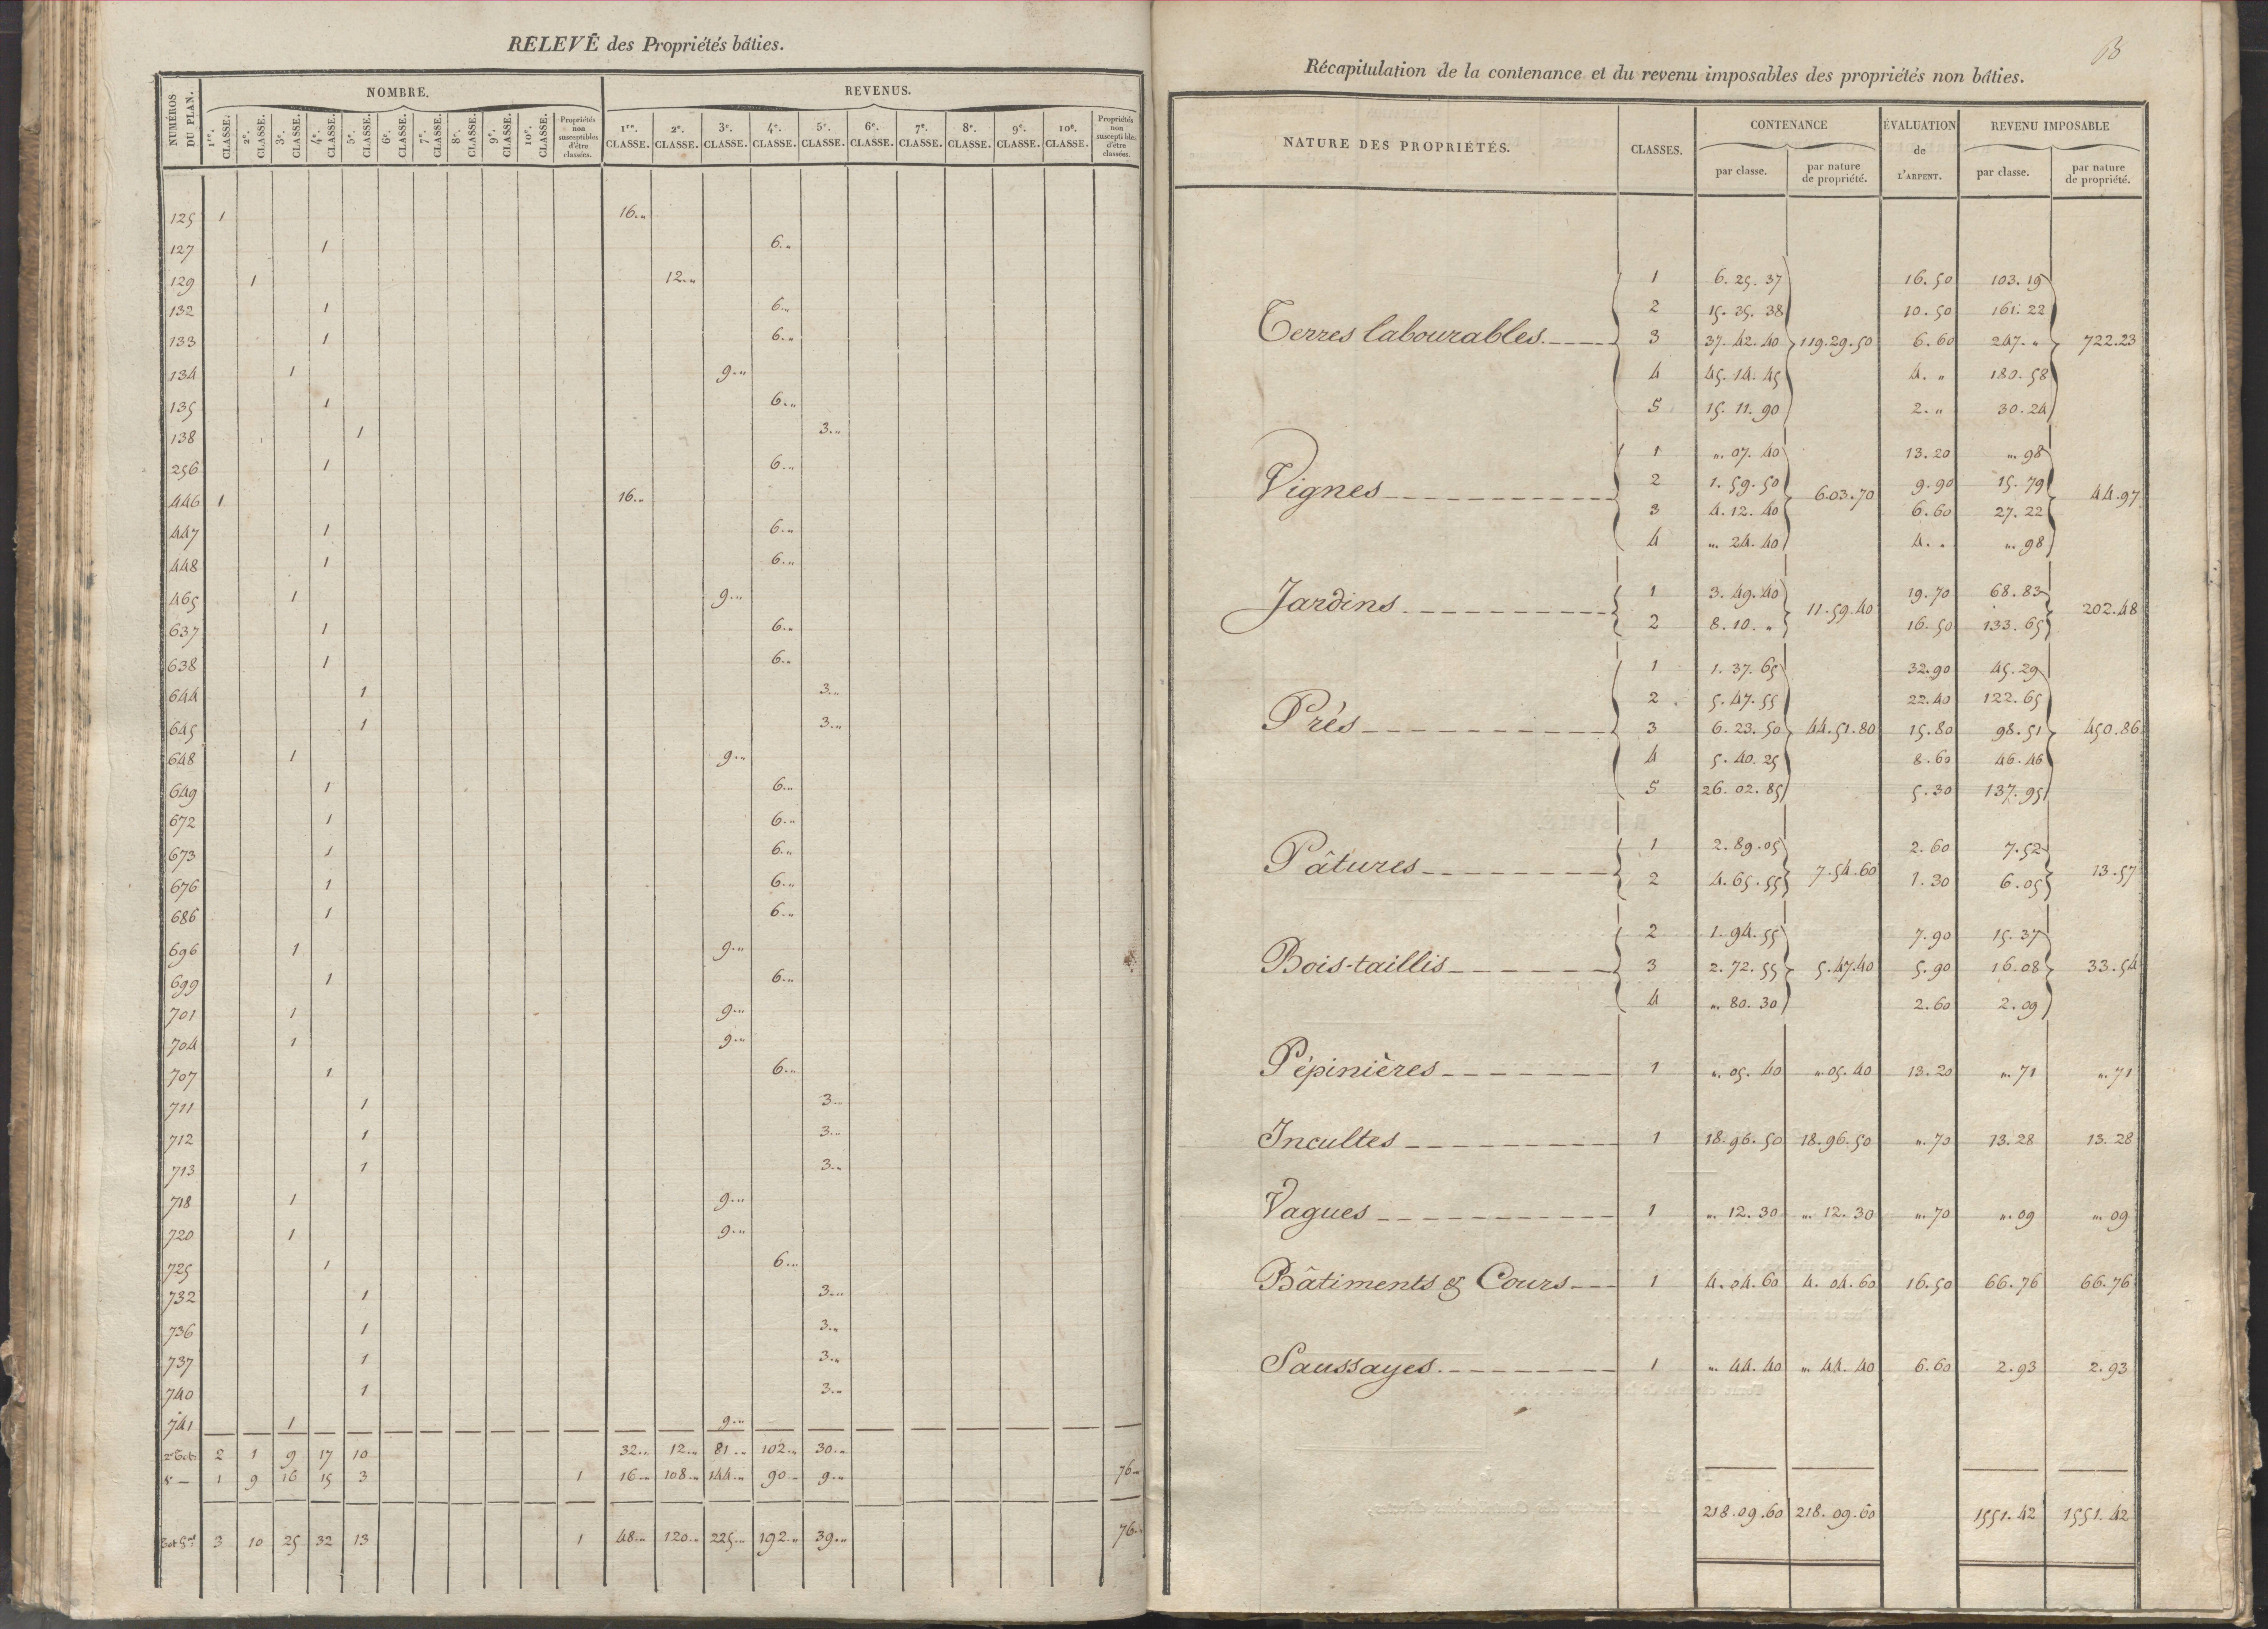 RELEVÉ des Propriétés bâties.
NUMÉROS DU PLAN. NOMBRE. REVENUS.
1re. CLASSE. 2e. CLASSE. 3e. CLASSE. 4e. CLASSE. 5e. CLASSE. 6e. CLASSE. 7e. CLASSE. 8e. CLASSE. 9e. CLASSE. 10e. CLASSE. Propriétés non susceptibles d'être classées. 1re. CLASSE. 2e. CLASSE. 3e. CLASSE. 4e. CLASSE. 5e. CLASSE. 6e. CLASSE. 7e. CLASSE. 8e. CLASSE. 9e. CLASSE. 10e. CLASSE. Propriétés non susceptibles d'être classées.
125 1 16.„
127 1 6.„
129 1 12.„
132 1 6.„
133 1 6.„
134 1 9.„
135 1 6.„
138 1 3.„
256 1 6.„
446 1 16.„
447 1 6.„
448 1 6.„
465 1 9.„
637 1 6.„
638 1 6.„
644 1 3.„
645 1 3.„
648 1 9.„
649 1 6.„
672 1 6.„
673 1 6.„
676 1 6.„
686 1 6.„
696 1 9.„
699 1 6.„
701 1 9.„
704 1 9.„
707 1 6.„
711 1 3.„
712 1 3.„
713 1 3.„
718 1 9.„
720 1 9.„
725 1 6.„
732 1 3.„
736 1 3.„
737 1 3.„
740 1 3.„
741 1 9.„
2 1 9 17 10 32.„ 12.„ 81.„ 102.„ 30.„
1 9 16 15 3 1 16.„ 108.„ 144.„ 90.„ 9.„ 76.„
3 10 25 32 13 1 48.„ 120.„ 225.„ 192.„ 39.„ 76.„
Récapitulation de la contenance et du revenu imposables des propriétés non bâties.
NATURE DES PROPRIÉTÉS. CLASSES. CONTENANCE ÉVALUATION de L'ARPENT. REVENU IMPOSABLE
par classe. par nature de propriété. par classe. par nature de propriété.
1 6.25.37 16.50 103.19
2 15.35.38 10.50 161.22
Terres labourables. 3 37.42.40 119.29.50 6.60 247.„ 722.23
4 45.14.45 4.„ 180.58
5 15.11.90 2.„ 30.24
1 „.07.40 13.20 „.98
2 1.59.50 9.90 15.79
Vignes 6.03.70 44.97
3 4.12.40 6.60 27.22
4 „.24.40 4.„ „.98
1 3.49.40 19.70 68.83
Jardins 11.59.40 202.48
2 8.10.„ 16.50 133.65
1 1.37.65 32.90 45.29
2 5.47.55 22.40 122.65
Prés 3 6.23.50 44.51.80 15.80 98.51 450.86
4 5.40.25 8.60 46.46
5 26.02.85 5.30 137.95
1 2.89.05 2.60 7.52
Pâtures 7.54.60 13.57
2 4.65.55 1.30 6.05
2 1.94.55 7.90 15.37
Bois-taillis 3 2.72.55 5.47.40 5.90 16.08 33.54
4 „.80.30 2.60 2.09
Pépinières 1 „.05.40 „.05.40 13.20 „.71 „.71
Incultes 1 18.96.50 18.96.50 „.70 13.28 13.28
Vagues 1 „.12.30 „.12.30 „.70 „.09 „.09
Bâtiments & Cours 1 4.04.60 4.04.60 16.50 66.76 66.76
Saussayes. 1 „.44.40 „.44.40 6.60 2.93 2.93
218.09.60 218.09.60 1551.42 1551.42